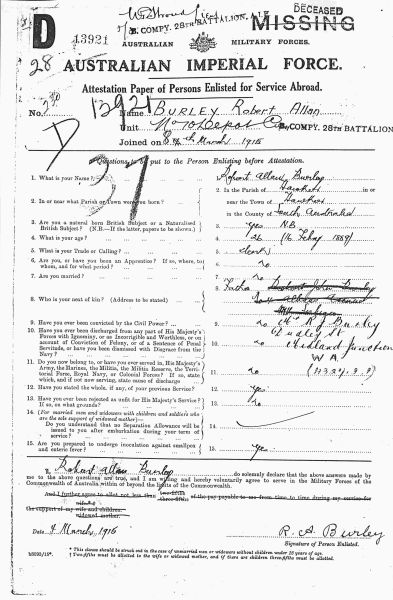 DECEASED
MISSING
B. COMPY. 28TH BATTALION, A.I.F.
D
13921
AUSTRALIAN MILITARY FORCES.
28
AUSTRALIAN IMPERIAL FORCE.
Attestation Paper of Persons Enlisted for Service Abroad.
No. 13921 Name BURLEY Robert Allan
Unit No 70 Depot B. COMPY. 28TH BATTALION
Joined on 8th March 1916
D
Questions to be put to the Person Enlisting before Attestation.
1. What is your Name? 1. Robert Allan Burley
2. In or near what Parish or Town were you born? 2. In the Parish of Hawker in or
near the Town of Hawker
in the County of South Australia
3. Are you a natural born British Subject or a Naturalised British Subject? (N.B.—If the latter, papers to be shown) 3. Yes N.B.
4. What is your age? 4. 26 (16 Feby 1889)
5. What is your Trade or Calling? 5. Clerk
6. Are you, or have you been an Apprentice? If so, where, to whom, and for what period? 6. no
7. Are you married? 7. no
8. Who is your next of kin? (Address to be stated) 8. Father Robert John Burley
R J Burley
Dudley St
Midland Junction
W A
9. Have you ever been convicted by the Civil Power? 9. no
10. Have you ever been discharged from any part of His Majesty's Forces with Ignominy, or as Incorrigible and Worthless, or on account of Conviction of Felony, or of a Sentence of Penal Servitude, or have you been dismissed with Disgrace from the Navy? 10. no
11. Do you now belong to, or have you ever served in, His Majesty's Army, the Marines, the Militia, the Militia Reserve, the Territorial Force, Royal Navy, or Colonial Forces? If so, state which, and if not now serving, state cause of discharge 11. no
12. Have you stated the whole, if any, of your previous Service? 12. Yes
13. Have you ever been rejected as unfit for His Majesty's Service? If so, on what grounds? 13. no
14. (For married men and widowers with children and soldiers who are the sole support of widowed mother)—
Do you understand that no Separation Allowance will be issued to you after embarkation during your term of service? 14.
15. Are you prepared to undergo inoculation against smallpox and enteric fever? 15. Yes
I, Robert Allan Burley do solemnly declare that the above answers made by
me to the above questions are true, and I am willing and hereby voluntarily agree to serve in the Military Forces of the
Commonwealth of Australia within or beyond the limits of the Commonwealth.
And I further agree to allot not less than two-fifths three-fifths of the pay payable to me from time to time during my service for
the support of my wife and children. widowed mother.
Date 8 March, 1916
R. A Burley
Signature of Person Enlisted.
* This clause should be struck out in the case of unmarried men or widowers without children under 18 years of age.
two-fifths must be allotted to the wife or widowed mother, and if there are children three-fifths must be allotted.